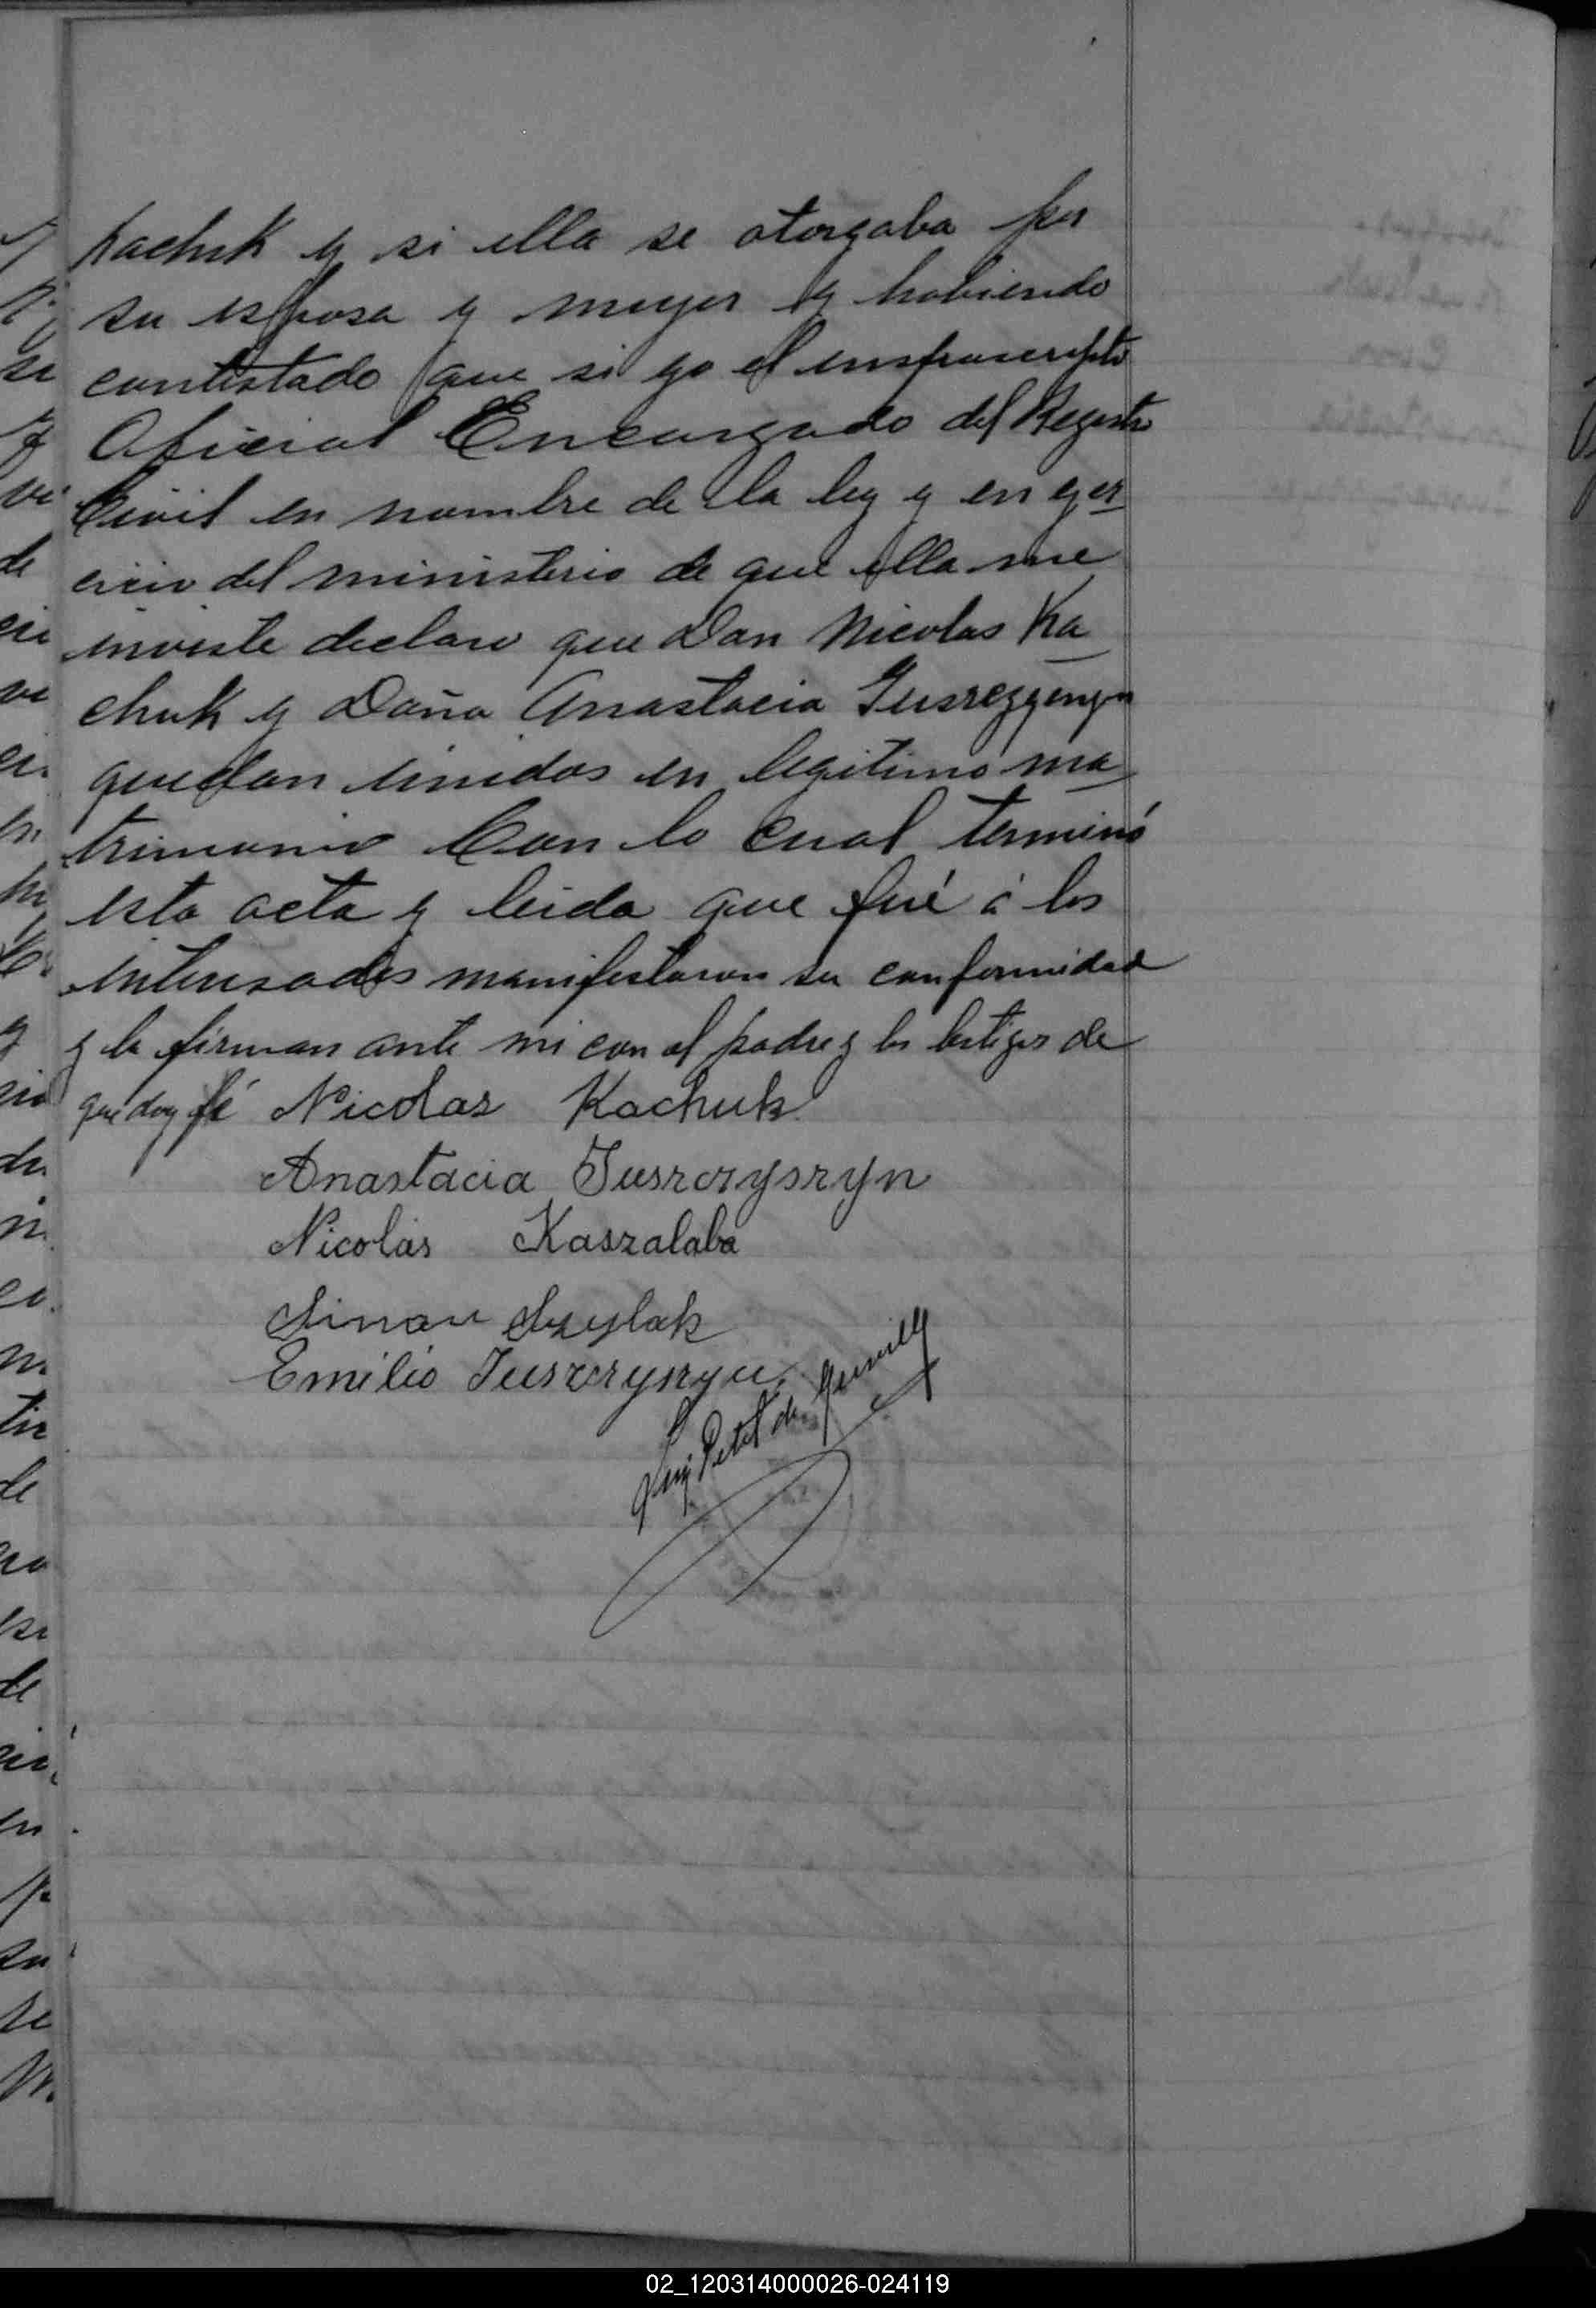 Kachuk y si ella se otorgaba por
su esposa y mujer y habiendo
contestado que si yo el infrascripto
Oficial Encargado del Registro
Civil en nombre de la ley y en ejer
cicio del ministerio de que ella me
inviste declaro que Don Nicolas Ka
chuk y Doña Anastacia
quedan unidos en legitimo ma
trimonio Con lo cual terminó
esta acta y leida que fué á los
interesados manifestaron su conformidad
y la firman ante mi con el padre y los testigos de
que doy fé Nicolas Kachuk
Anastacia Juszczyszyn
Nicolás Kaszalaba
Simon Szylak
Emilio
Luis Petit de
02_120314000026-024119